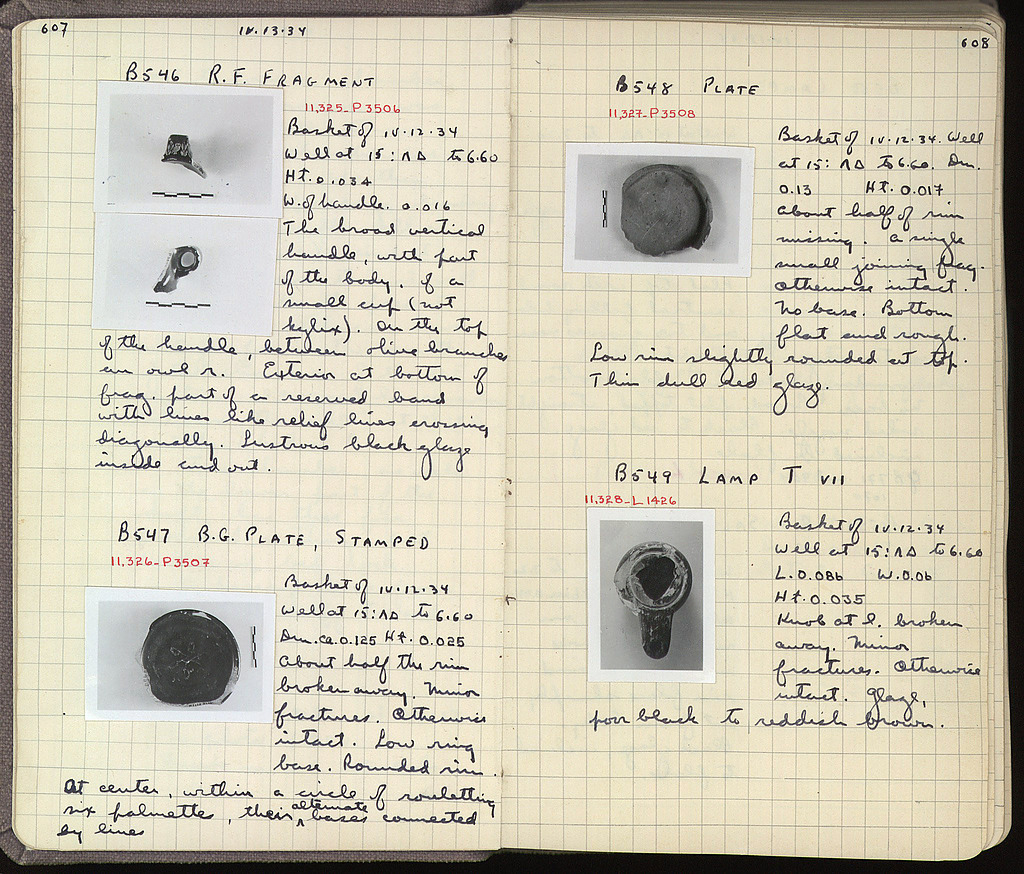 607
IV.13.34
B546 R.F. FRAGMENT
11,325-P3506
Basket of IV.12.34
Well at 15:ΛΔ to 6.60
Ht. 0.034
W. of handle. 0.016
The broad vertical
handle, with part
of the body, of a
small cup (not
kylix). On the top
of the handle, between olive branches
an owl r. Exterior at bottom of
frag. part of a reserved band
with lines like relief lines crossing
diagonally. Lustrous black glaze
inside and out.
B547 B.G. PLATE, STAMPED
11,326-P3507
Basket of IV.12.34
Well at 15:ΛΔ to 6.60
Dm. ca. 0.125 Ht. 0.025
About half the rim
broken away. Minor
fractures. Otherwise
intact. Low ring
base. Rounded rim.
At center, within a circle of rouletting
six palmettes, their alternate bases connected
by lines
608
B548 PLATE
11,327-P3508
Basket of IV.12.34. Well
at 15:ΛΔ to 6.60. Dm.
0.13 Ht. 0.017
About half of rim
missing. A single
small joining frag.
Otherwise intact.
No base. Bottom
flat and rough.
Low rim slightly rounded at top.
Thin dull red glaze.
B549 LAMP T VII
11,328-L1426
Basket of IV.12.34
Well at 15:ΛΔ to 6.60
L. 0.086 W. 0.06
Ht. 0.035
Knob at l. broken
away. Minor
fractures. Otherwise
intact. Glaze,
poor black to reddish brown.